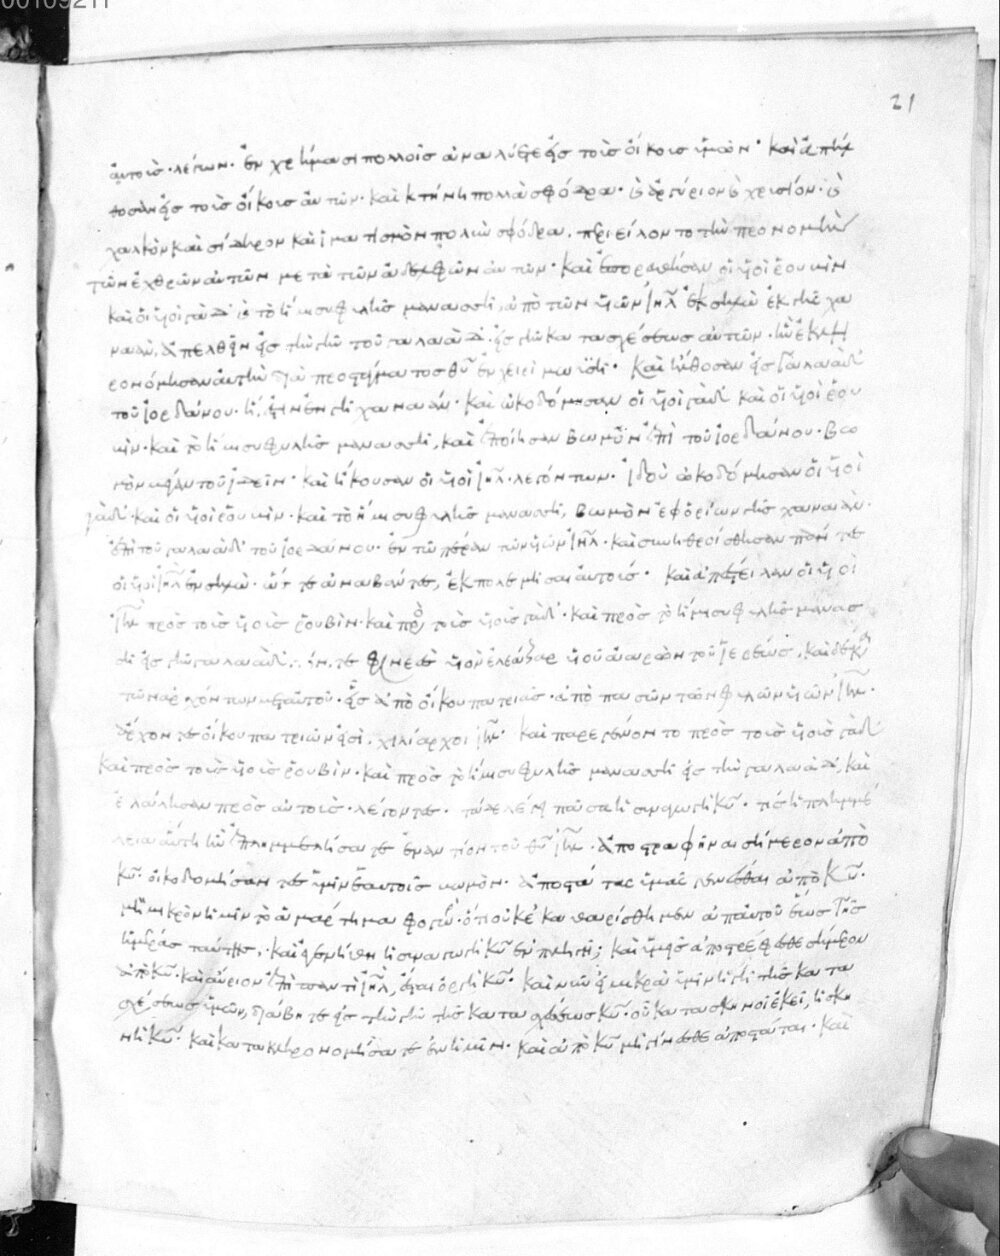 00109211
21
ἀυτοὶσ· λέγων· ἐν χρήμασι πολλοῖσ ἀναλύετε εἰσ τοὶσ οἴκοισ ὑμῶν· καὶ ἀπήλ
θοσὰν εἰσ τοὶσ οἴκοισ αὐτῶν· καὶ κτήνη πολλὰ σφόδρα· κὶ ἀργύριον κὶ χρισίον· κὶ
χαλκὸν καὶ σίδηρον καὶ ἱματισμὸν πολλὺν σφόδρα. διείλοντο τὴν προνομὴν
τῶν ἐχθρῶν αὐτῶν μετὰ τῶν ἀδελφῶν αὐτῶν· καὶ ἐπορεύθησαν οἱ ὑιοὶ ρουβὶν
καὶ οἱ ὑιοὶ γὰδ κὶ τὸ ἥμισυ φυλῆσ μανασσῆ, ἀπὸ τῶν ὑιῶν ἰηλ ἐκ σηλὼ ἐκ γῆσ χα
ναὰν, ἀπελθεῖν εἰσ τὴν γῆν τοῦ γαλαὰδ· εἰσ γῆν κατασχέσεωσ αὐτῶν· ἣν ἐκλη
ρονόμησαν αὐτὴν διὰ προστάγματοσ θυ ἐν χειρὶ μωϋσῆ· καὶ ἤλθοσαν εἰσ γαλαὰδ
τοῦ ἰορδάνου· ἥ ἐστιν ἐν γῆ χαναάν· καὶ ὠκοδόμησαν οἱ ὑιοὶ γὰδ καὶ οἱ ὑιοὶ ρου
βὶν· καὶ τὸ ἥμισυ φυλῆσ μανασσῆ, καὶ ἐποίησαν βωμὸν ἐπὶ τοῦ ἰορδάνου· βω
μὸν μέγαν τοῦ ἰδεῖν· καὶ ἤκουσαν οἱ ὑιοὶ ἰηλ· λεγόντων· ἰδοὺ ὠκοδόμησαν οἱ ὑιοὶ
γὰδ· καὶ οἱ ὑιοὶ ρουβὶν· καὶ τὸ ἥμισυ φυλῆσ μανασσῆ, βωμὸν ἐφ ὁρίων γῆσ χαναὰν·
ἐπὶ τοῦ γαλαὰδ τοῦ ἰορδάνου· ἐν τῶ πέραν τῶν ὑιῶν ἰηλ· καὶ συνηθροίσθησαν πάντεσ
οἱ ὑιοὶ ἰηλ ἐν σηλὼ· ὥστε ἀναβάντεσ, ἐκπολεμῆσαι αὐτοισ· καὶ ἀπέστειλαν οἱ ὑιοὶ
ιηλ πρὸσ τοὶσ ὑιοὶσ ρουβὶν· καὶ προσ τοὶσ ὑιοὶσ γὰδ· καὶ πρὸσ τὸ ἥμισυ φυλῆσ μανασ
σῆ εἰσ γῆν γαλαὰδ· φινεὲσ ὑιὸν ἐλεάζαρ ὑιοῦ ἀαρὼν τοῦ ἱερέωσ, καὶ δέκα
τῶν ἀρχόντων μετ αὐτοῦ· εἷσ ἀπὸ οἴκου πατριᾶσ· ἀπὸ πασῶν τῶν φυλῶν ὑιῶν ιηλ·
ἄρχοντεσ οἴκου πατριῶν εἰσὶ, χιλίαρχοι ιηλ· καὶ παρεγένοντο πρὸσ τοὶσ ὑιοὶσ γὰδ
καὶ πρὸσ τοὶσ ὑιοὶσ ρουβὶν· καὶ πρὸσ τὸ ἥμισυ φυλῆσ μανασσῆ εἰσ τὴν γαλαὰδ, καὶ
ἐλάλησαν πρὸσ αὐτοὶσ· λέγοντεσ· τάδε λέγει πᾶσα ἡ συναγωγὴ κυ· τίσ ἡ πλημμέ
λεια αὕτη ἣν ἐπλημμελήσατε ἐναντίον τοῦ θυ ιηλ· ἀποστραφῆναι σήμερον ἀπὸ
κυ· οἰκοδομήσαντεσ ὑμῖν ἑαυτοῖσ βωμὸν· ἀποστάτασ ὑμᾶσ γενέσθαι ἀπὸ κυ·
μὴ μικρὸν ἡμῖν τὸ ἁμάρτημα φογὼρ· ὅτι οὐκ ἐκαθαρίσθημεν ἀπ αὐτοῦ ἕωσ τῆσ
ἡμέρασ ταύτησ,· καὶ ἐγενήθη ἡ συναγωγὴ κυ ἐν πληγῆ; καὶ ὑμεῖσ ἀποστρέφεσθε σήμερον
ἀπὸ κυ· καὶ αὔριον ἐπὶ πάντα ιηλ, ἔσται ὀργὴ κυ· καὶ νῦν εἰ μικρὰ ὑμῖν ἡ γῆ τῆσ κατα
σχέσεωσ ὑμῶν, διάβητε εἰσ τὴν γῆν τῆσ κατασχέσεωσ κυ· οὗ κατασκηνοῖ ἐκεῖ, ἡ σκη
νὴ κυ· καὶ κατακληρονομήσατε ἐν ἡμῖν· καὶ ἀπὸ κυ μὴ γίνεσθε ἀποστάται· καὶ